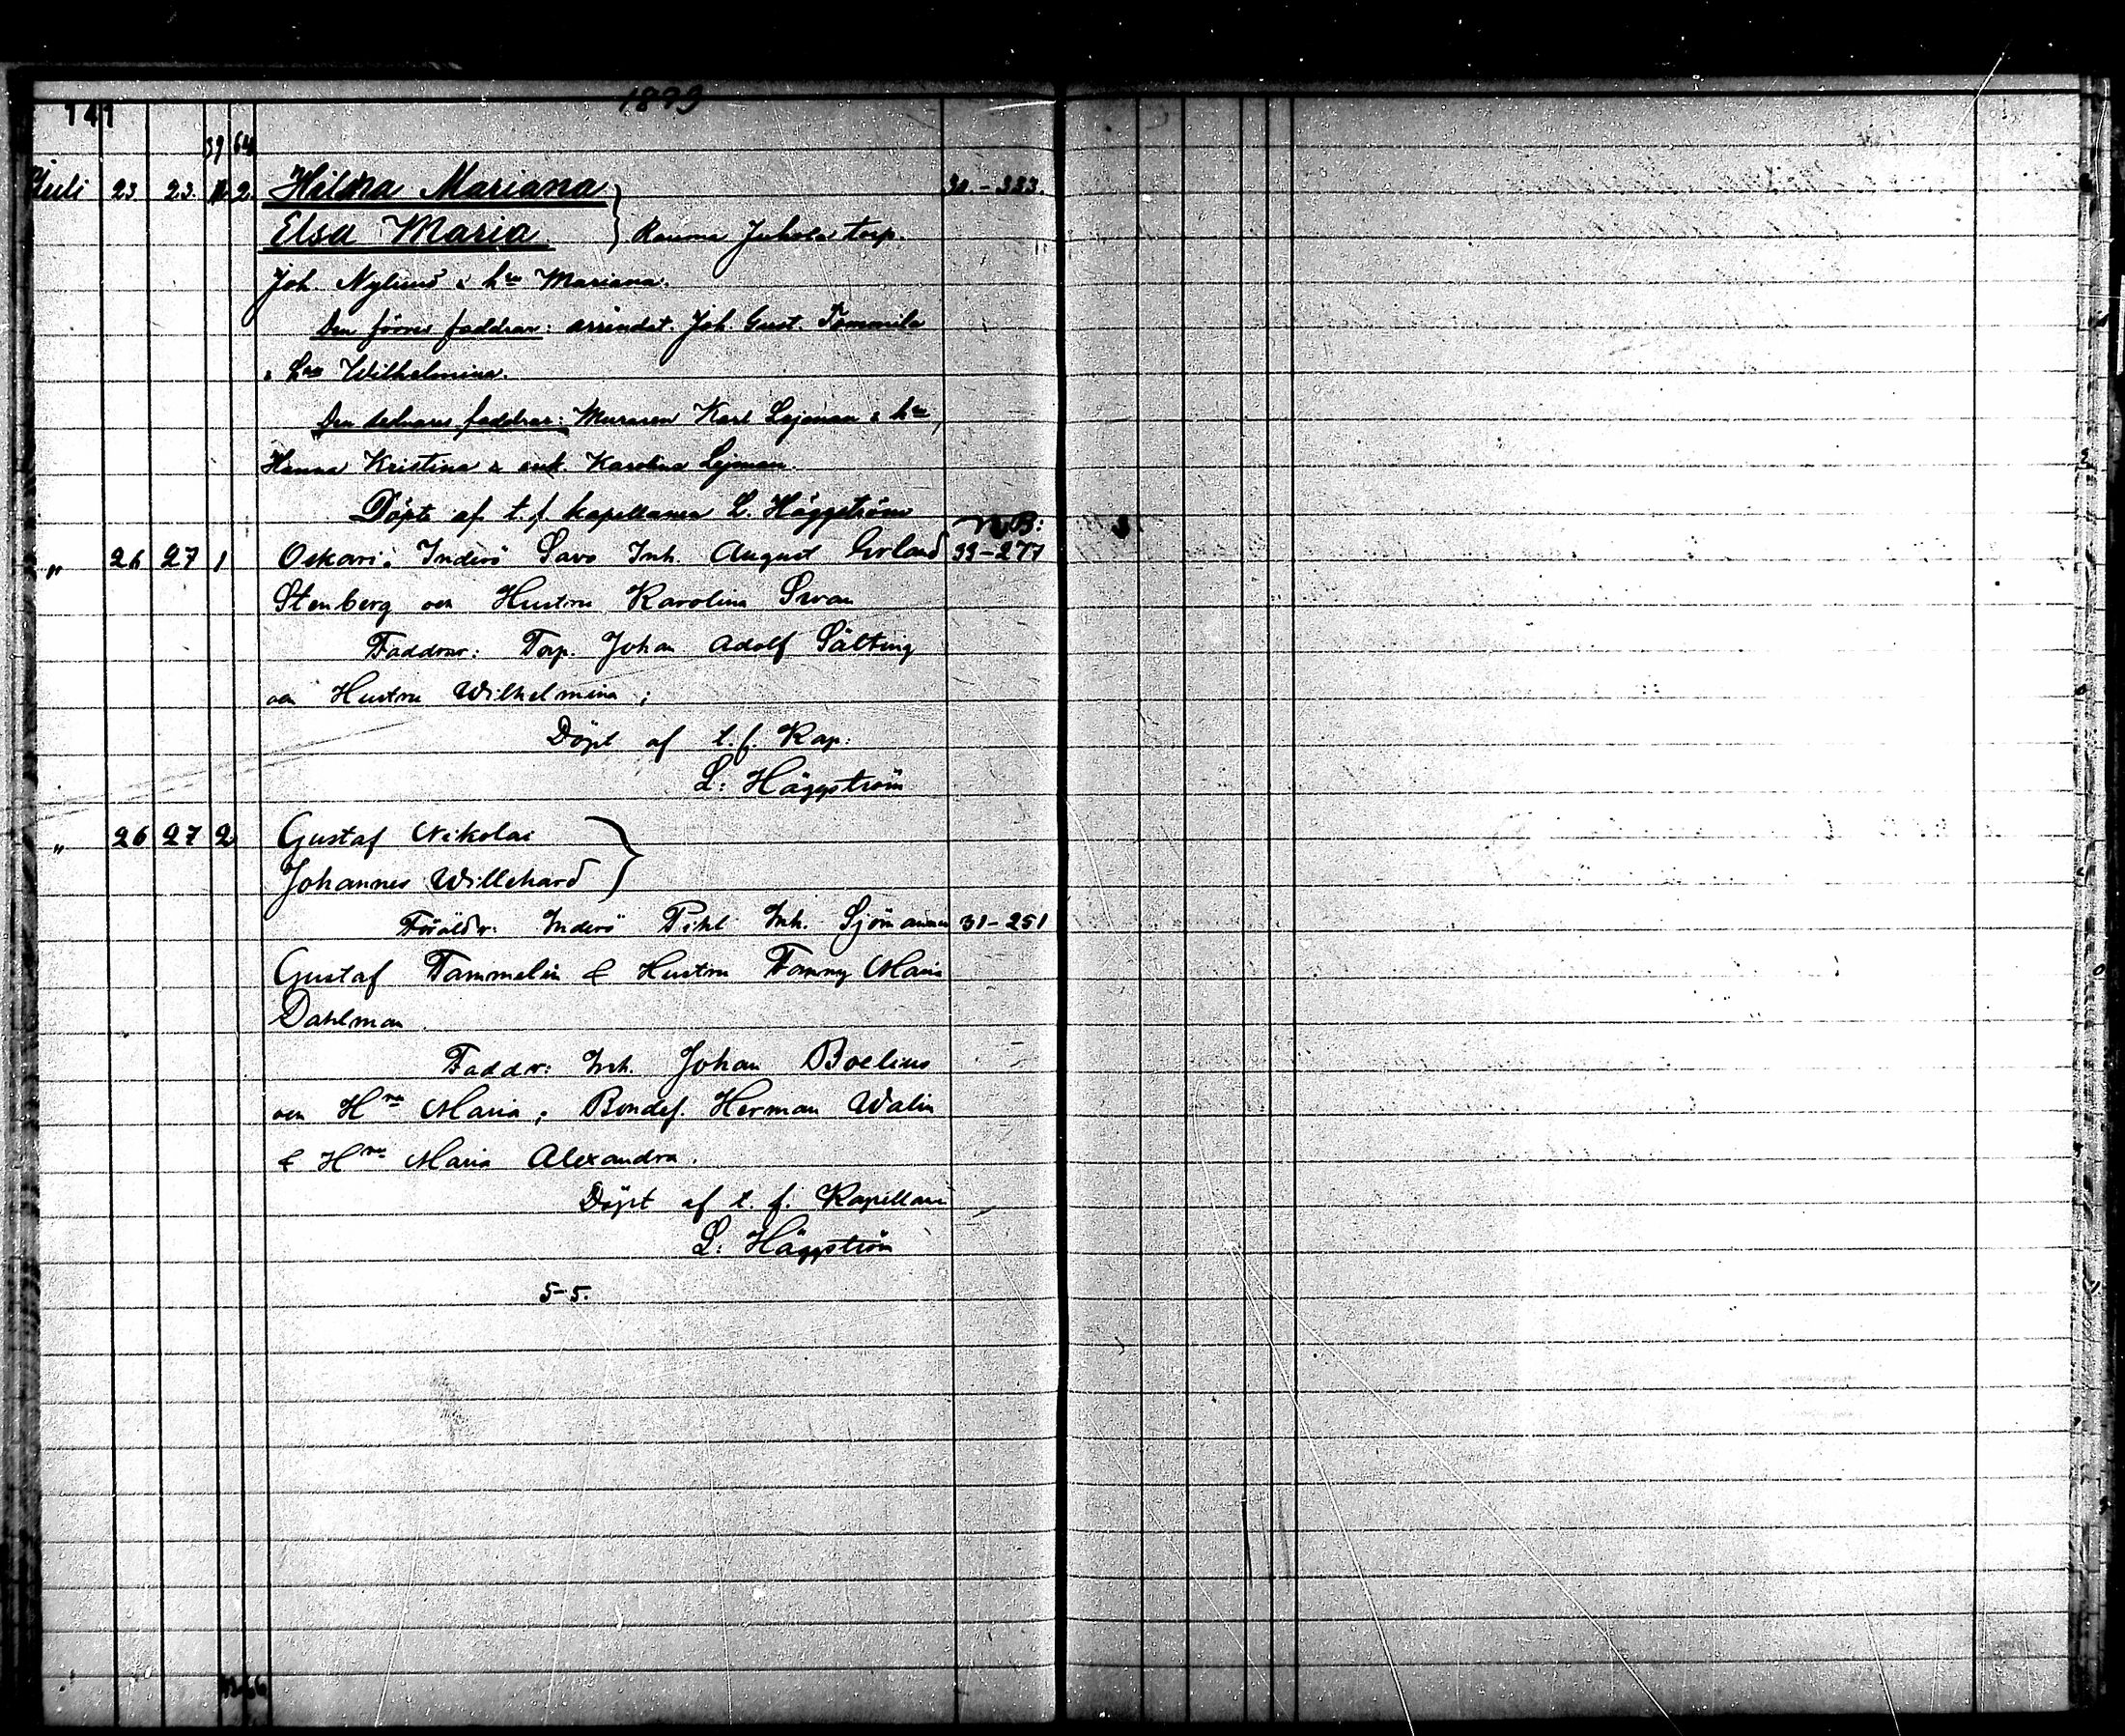 141 1899
39 64
Juli 23 23. 2. Hilma Mariana 30-333.
Elsa Maria } Rauma Juhola torp.
Joh. Nylund & hru Mariana.
Den förres faddrar: arrendat. Joh. Gust. Tommila
& hru Wilhelmina.
Den sednares faddrar: Muraren Karl Lejman & hru,
Hanna Kristina & enk. Karolina Lejman.
Döpte af t. f. kapellanen L. Häggström
NB:
" 26 27 1 Oskari. Inderö Savo Inh. August Erland 33-277
Stenberg och Hustru Karolina Swan
Faddrar: Torp. Johan Adolf Sälting
och Hustru Wilhelmina;
Döpt af t. f. Kap:
L: Häggström
" 26 27 2 Gustaf Nikolai
Johannes Willehard }
Föräldr. Inderö Pihl Inh. Sjömannen 31-251
Gustaf Tammelin & Hustru Fanny Maria
Dahlman
Faddr: Inh. Johan Boelius
och Hru Maria; Bondes. Herman Walin
& Hru Maria Alexandra.
Döpt af t. f. Kapellan
L: Häggström
5-5.